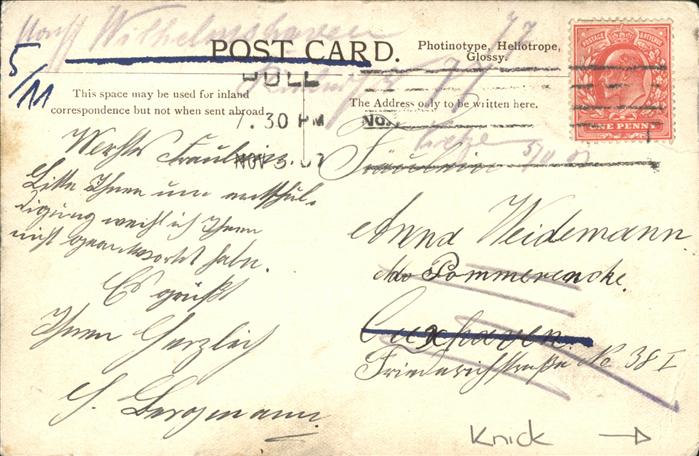 Wilhelmshaven
POST CARD.
Photinotype, Heliotrope,
Glossy.
5/11
HULL
This space may be used for inland
correspondence but not when sent abroad
The Address only to be written here.
7.30 PM
NOV 3 07
POSTAGE
ONE PENNY
Werthes Fräulein.
Bitte Ihnen um entschul-
digung weihl ich Ihnen
nicht geantwortet habe.
Es grüßt
Ihnen Herzlich
Bergmann.
Fräulein
5/11 07
Anna Weidemann.
Pommerencke.
Cuxhaven.
Friederichstraße No 38 I
Knick →